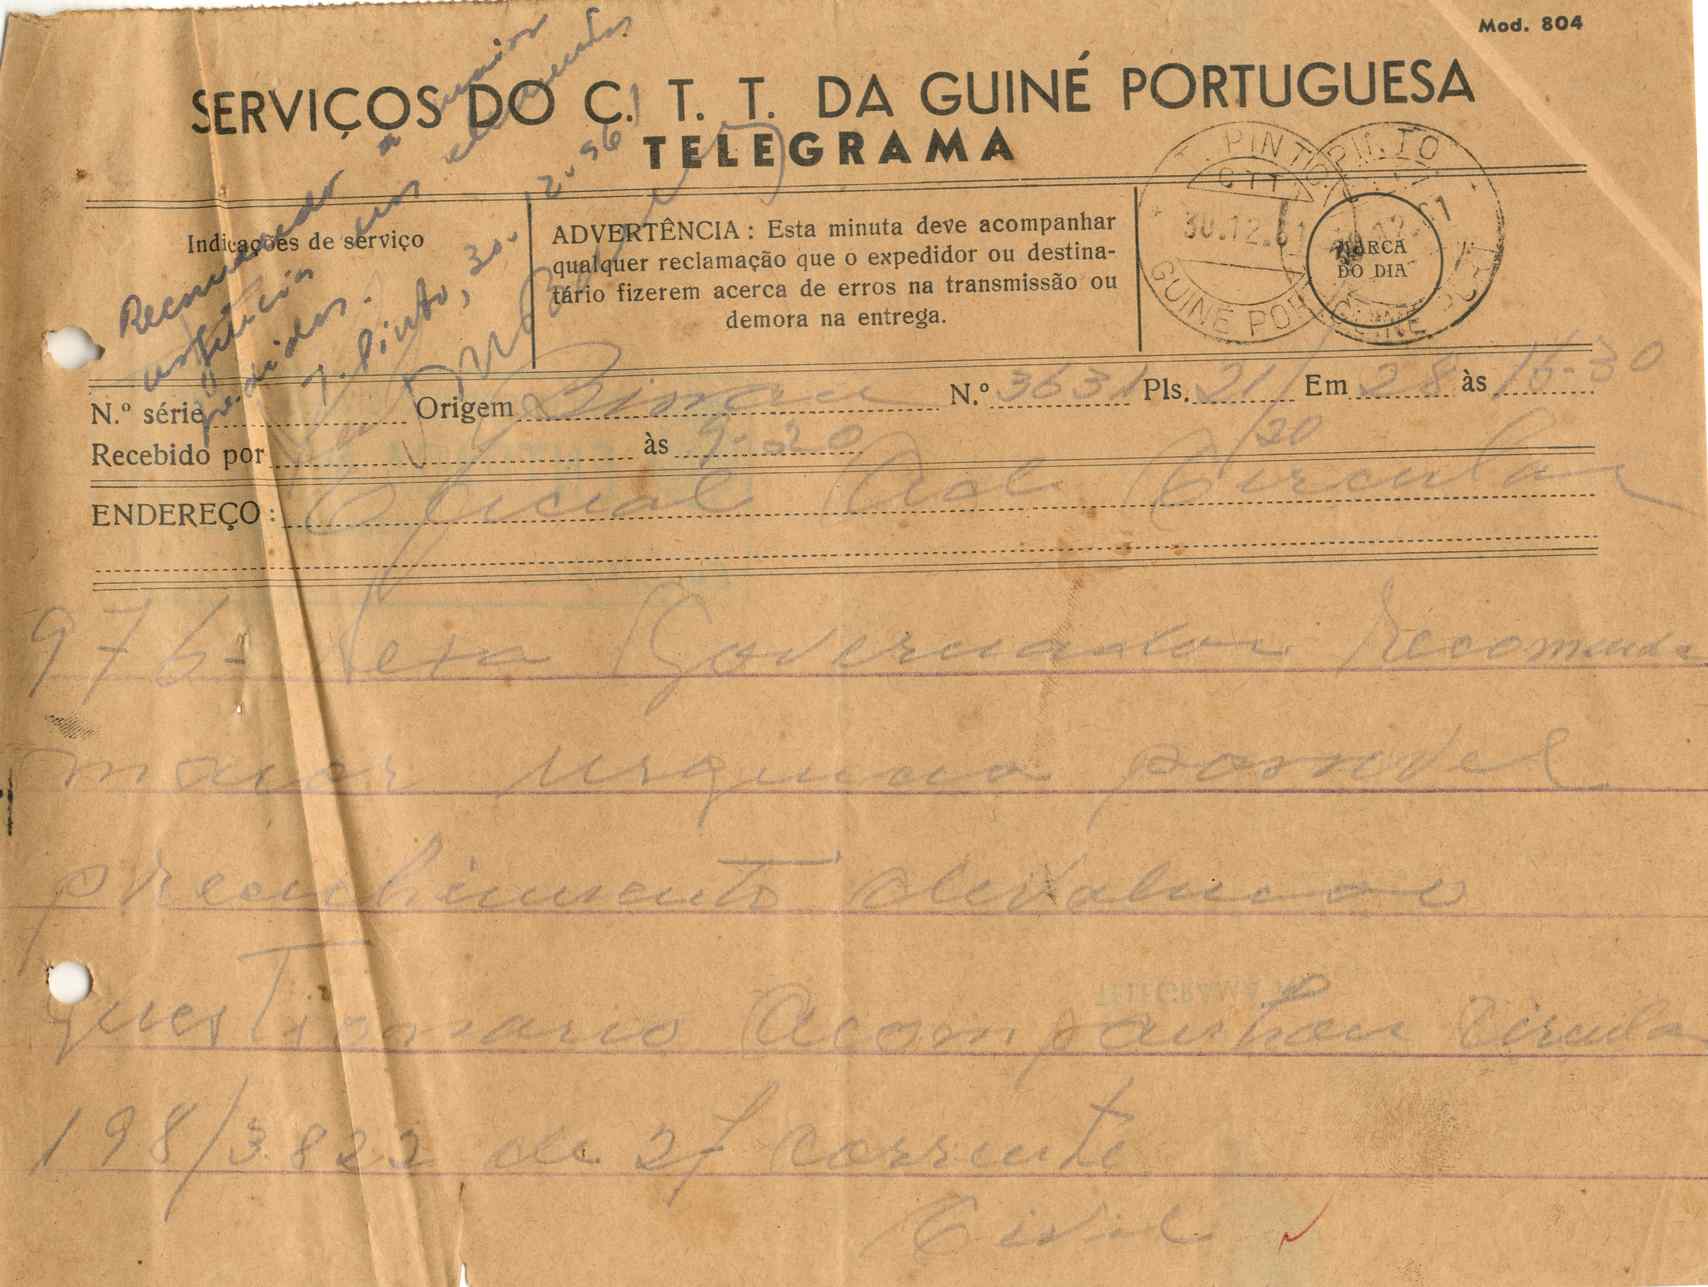 Mod. 804
SERVIÇOS DO C. T. T. DA GUINÉ PORTUGUESA
TELEGRAMA
Recomendar a maior
urgência nos elementos
pedidos.
T. Pinto, 30.12.961
Indicações de serviço
ADVERTÊNCIA : Esta minuta deve acompanhar
qualquer reclamação que o expedidor ou destina-
tário fizerem acerca de erros na transmissão ou
demora na entrega.
T. PINTO
CTT
30.12.61
GUINÉ PORT
MARCA
DO DIA
N.º série Origem Bissau N.º 3631 Pls. 21/20 Em 28 às 16-30
Recebido por às 9-20
ENDEREÇO : Oficial Adi Circular
976- Sexa Governador recomenda
maior urgencia possivel
preenchimento devolucao
questionario acompanhou circular
198/3.822 de 27 corrente
Civil